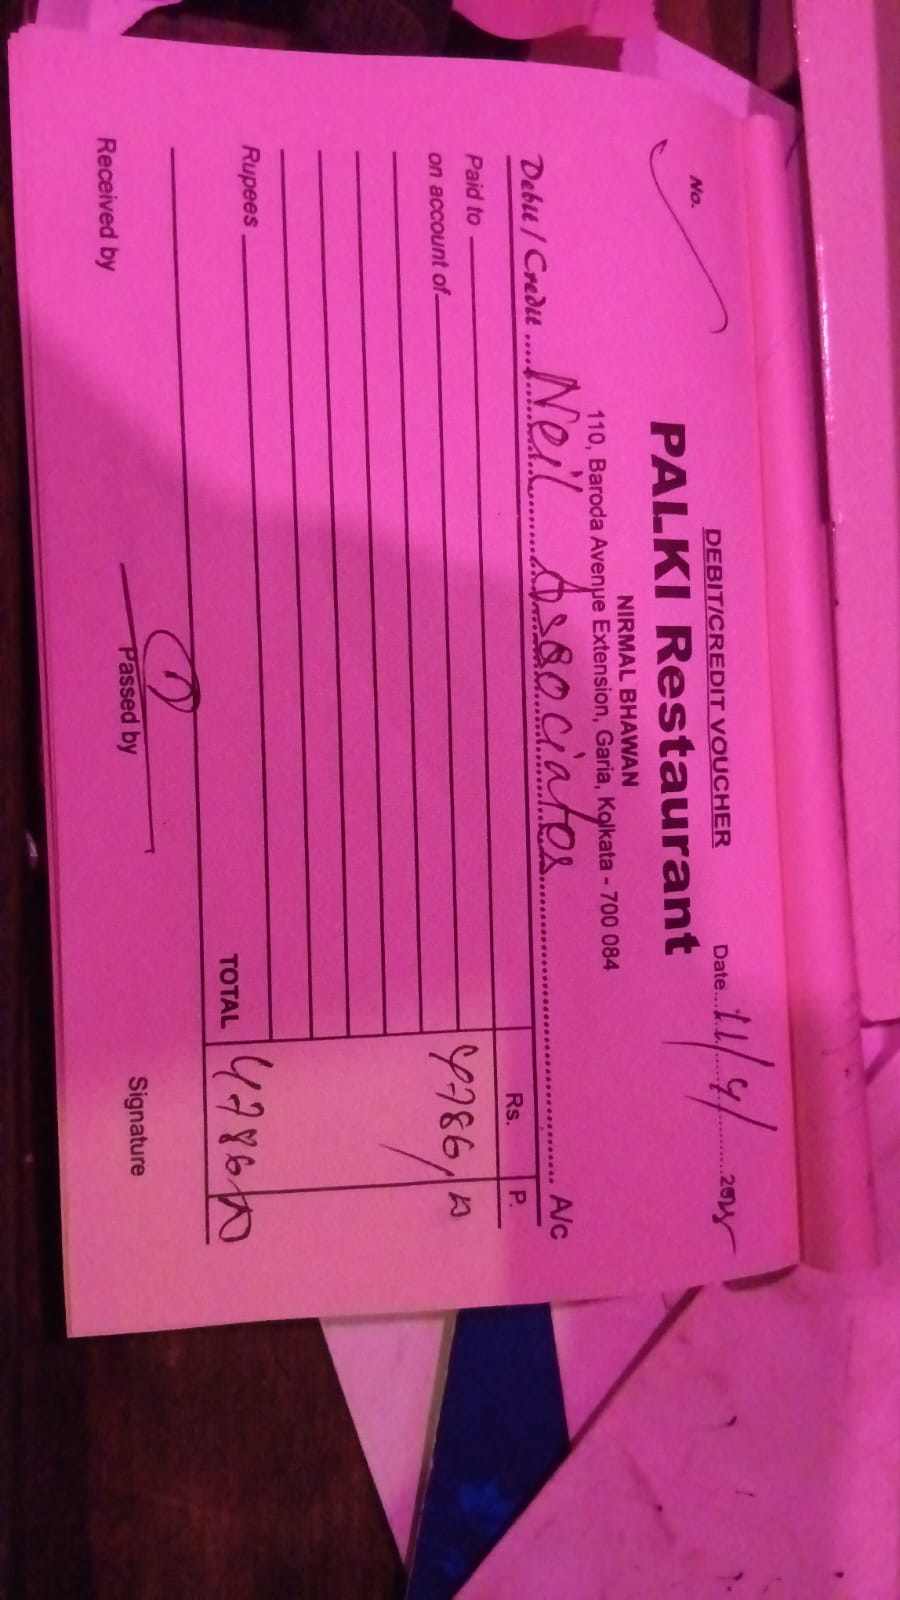 DEBIT/CREDIT VOUCHER
No. Date 11/4/2025
PALKI Restaurant
NIRMAL BHAWAN
110, Baroda Avenue Extension, Garia, Kolkata - 700 084
Debit / Credit Neil Associates A/c
Rs. P.
Paid to
on account of 4786/
Rupees
TOTAL 4786
Received by Passed by Signature